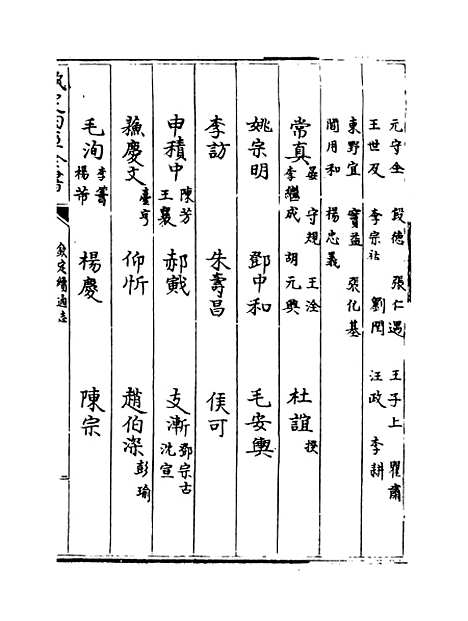 元守全　段德　張仁遇　王子上　瞿肅
王世及　李宗祐　劉閏　汪政　李耕
東野宜　竇益　張化基
閻用和　楊忠義
常真　晏守規　王洤　李繼成　胡元興　杜誼　授
姚宗明　鄧中和　毛安輿
李訪　朱壽昌　侯可
申積中　陳芳　王襄　郝戭　支漸　鄧宗古　沈宣
蘓慶文　臺亨　仰忻　趙伯深　彭瑜
毛洵　李籌　楊芾　楊慶　陳宗
欽定四庫全書
欽定續通志
二